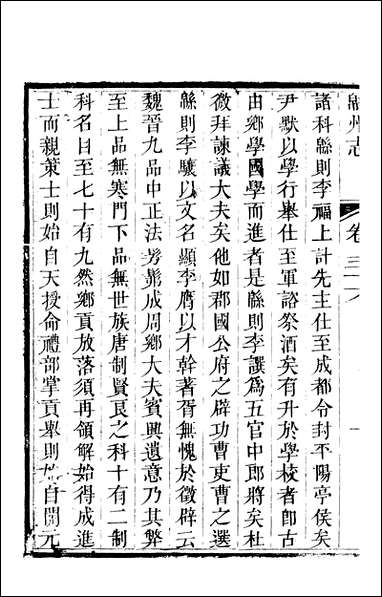 綿州志 卷三十八 一
諸科緜則李福上計先主仕至成都令封平陽亭侯矣
尹默以學行舉仕至軍諮祭酒矣有升於學校者即古
由鄉學國學而進者是緜則李譔爲五官中郎將矣杜
微拜諫議大夫矣他如郡國公府之辟功曹吏曹之選
緜則李驤以文名顯李膺以才幹著胥無愧於徵辟云
魏晉九品中正法旁髴成周鄉大夫賓興遺意乃其弊
至上品無寒門下品無世族唐制賢良之科十有二制
科名目至七十有九然鄉貢放落須再領解始得成進
士而親策士則始自天授命禮部掌貢舉則始自開元